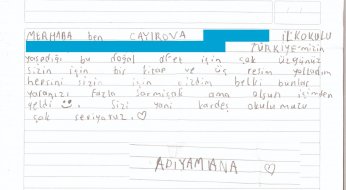 MERHABA ben ÇAYIROVA İLKOKULU
TÜRKİYE'mizin
yaşadığı bu doğal afet için çok üzgünüz
sizin için bir kitap ve üç resim yolladım
hepsini sizin için çizdim belki bunlar
yaranızı fazla sarmıcak ama olsun içimden
geldi sizi yani kardeş okulumuzu
çok seviyoruz.
ADIYAMANA